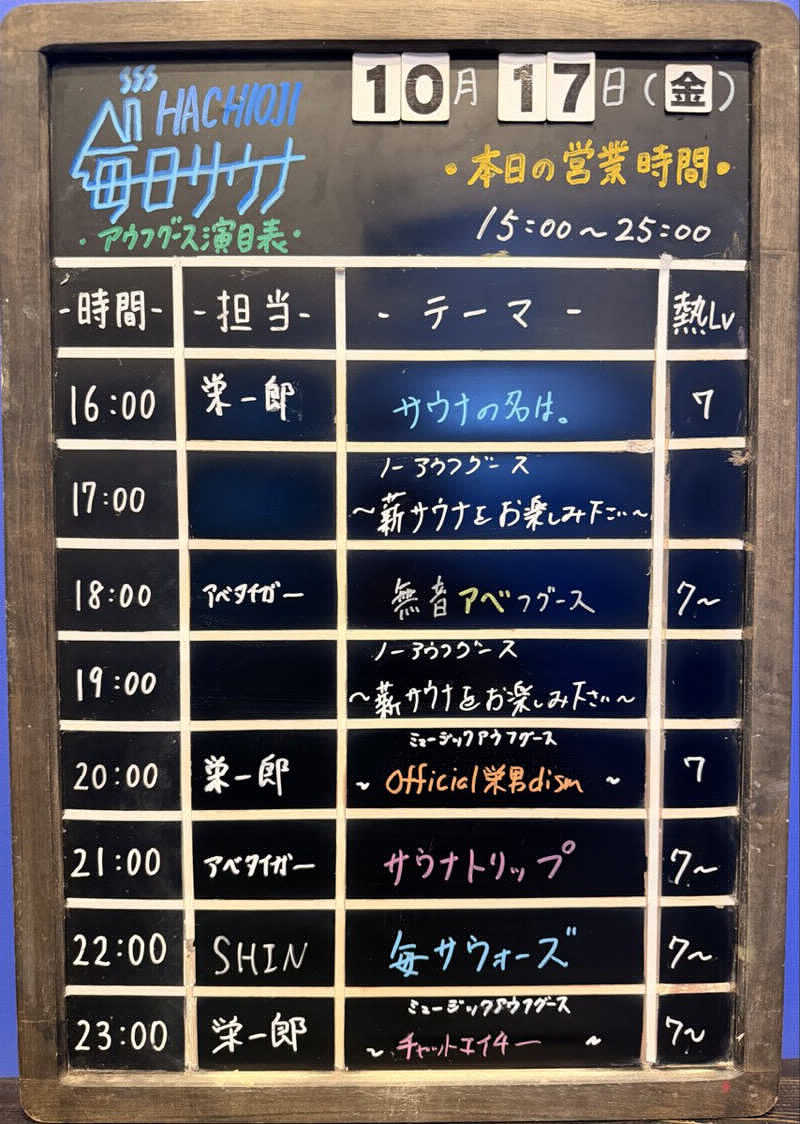 HACHIOJI
毎日サウナ
・アウフグース演目表・
10月17日(金)
・本日の営業時間・
15:00～25:00
-時間- -担当- -テーマ- 熱Lv
16:00 栄一郎 サウナの名は。 7
17:00 ノーアウフグース
～薪サウナをお楽しみ下さい～
18:00 アベタイガー 無音アベフグース 7～
19:00 ノーアウフグース
～薪サウナをお楽しみ下さい～
ミュージックアウフグース
20:00 栄一郎 ～Official栄男dism～ 7
21:00 アベタイガー サウナトリップ 7～
22:00 SHIN 毎サウォーズ 7～
ミュージックアウフグース
23:00 栄一郎 ～チャットエイチー～ 7～